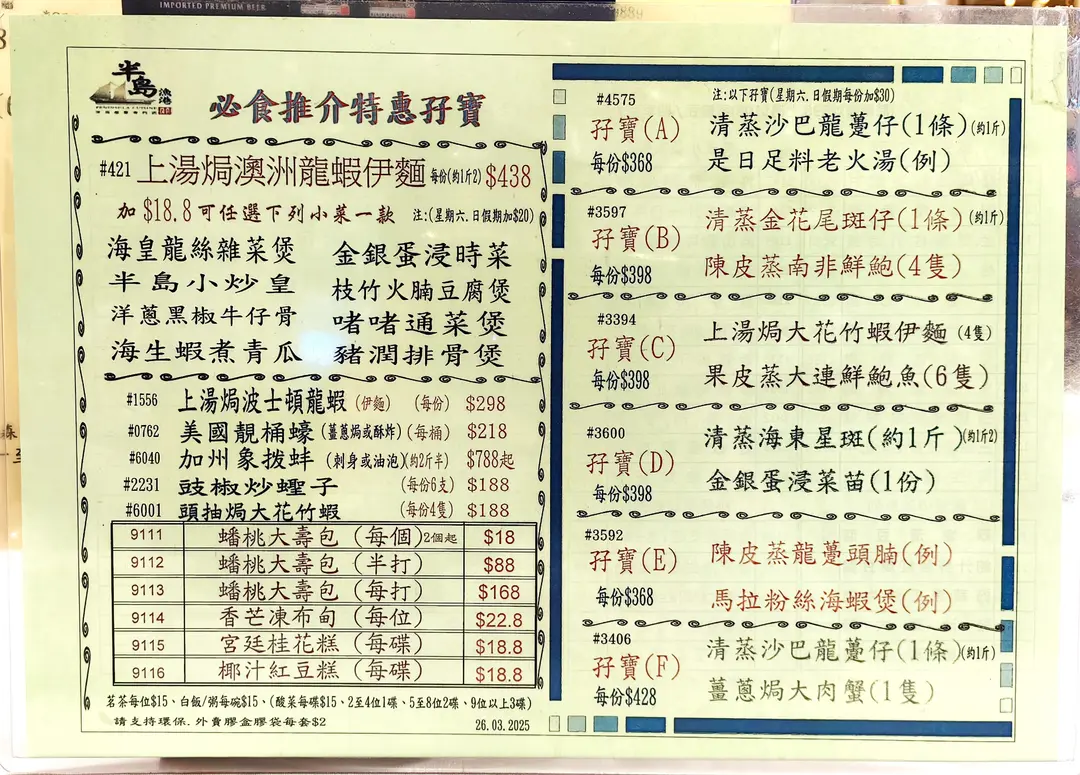 IMPORTED PREMIUM BEER
半島
漁港
PENINSULA CUISINE
必食推介特惠孖寶
#421 上湯焗澳洲龍蝦伊麵 每份(約1斤2) $438
加 $18.8 可任選下列小菜一款 注:(星期六.日假期加$20)
海皇龍絲雜菜煲 金銀蛋浸時菜
半島小炒皇 枝竹火腩豆腐煲
洋蔥黑椒牛仔骨 啫啫通菜煲
海生蝦煮青瓜 豬潤排骨煲
#1556 上湯焗波士頓龍蝦 (伊麵) (每份) $298
#0762 美國靚桶蠔 (薑蔥焗或酥炸) (每桶) $218
#6040 加州象拔蚌 (刺身或油泡)(約2斤半) $788起
#2231 豉椒炒蟶子 (每份6支) $188
#6001 頭抽焗大花竹蝦 (每份4隻) $188
9111 蟠桃大壽包 (每個) 2個起 $18
9112 蟠桃大壽包 (半打) $88
9113 蟠桃大壽包 (每打) $168
9114 香芒凍布甸 (每位) $22.8
9115 宮廷桂花糕 (每碟) $18.8
9116 椰汁紅豆糕 (每碟) $18.8
茗茶每位$15、白飯/粥每碗$15、(酸菜每碟$15、2至4位1碟、5至8位2碟、9位以上3碟)
請支持環保.外賣膠盒膠袋每套$2 26.03.2025
#4575 注:以下孖寶(星期六.日假期每份加$30)
孖寶(A) 清蒸沙巴龍躉仔(1條)(約1斤)
每份$368 是日足料老火湯(例)
#3597 清蒸金花尾斑仔(1條)(約1斤)
孖寶(B)
每份$398 陳皮蒸南非鮮鮑(4隻)
#3394 上湯焗大花竹蝦伊麵 (4隻)
孖寶(C)
每份$398 果皮蒸大連鮮鮑魚(6隻)
#3600 清蒸海東星斑(約1斤)(約1斤2)
孖寶(D)
每份$398 金銀蛋浸菜苗(1份)
#3592
孖寶(E) 陳皮蒸龍躉頭腩(例)
每份$368 馬拉粉絲海蝦煲(例)
#3406 清蒸沙巴龍躉仔(1條)(約1斤)
孖寶(F)
每份$428 薑蔥焗大肉蟹(1隻)